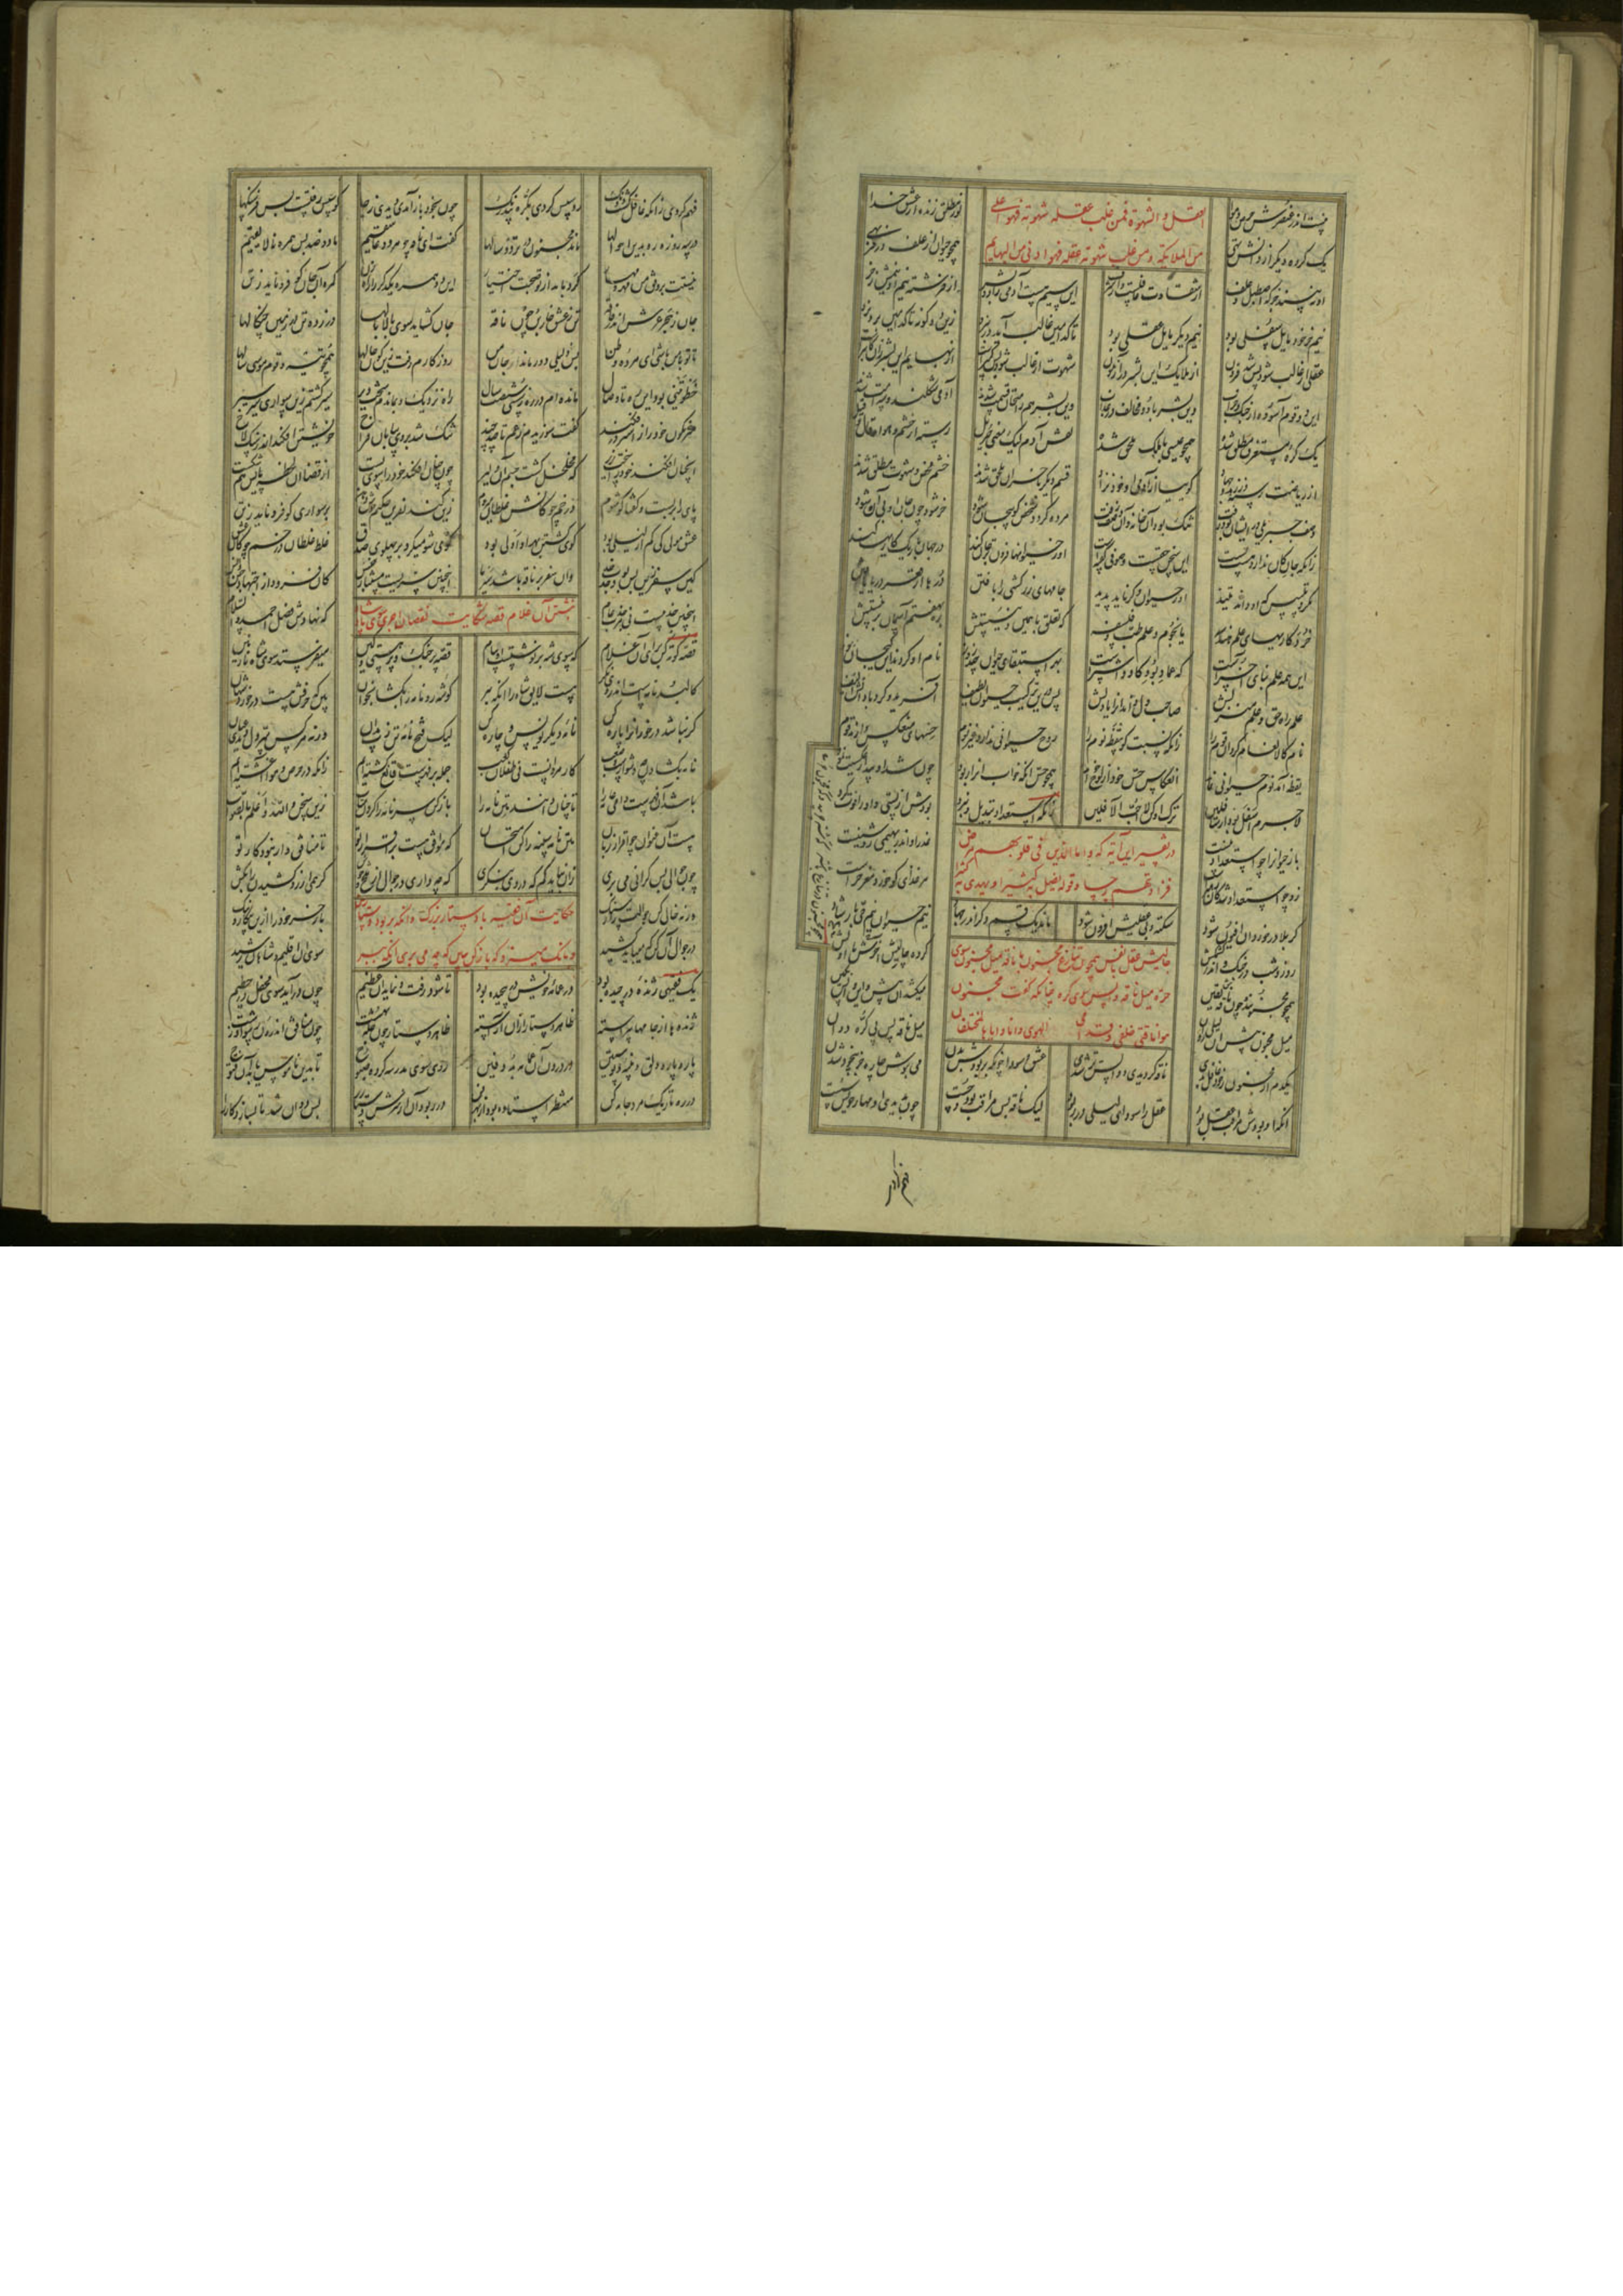 نیست اندر عنصرش حرص و هوا نور مطلق زنده از عشق خدا
العقل و الشهوة فمن غلب عقله شهوته فهو اعلی
یک گروه دیگر از دانش تهی همچو حیوان از علف در فربهی
من الملائکة و من غلب شهوته عقله فهو ادنی من البهایم
او نبیند جز که اصطبل و علف از شقاوت غافلست و از شرف این سیم هست آدمی زاد و بشر از فرشته نیم و نیمش ز خر
نیم خر خود مایل سفلی بود نیم دیگر مایل عقلی بود تا کدامین غالب آید در نبرد زین دوگانه تا کدامین برد نرد
عقل ار غالب شود پس شد فزون از ملایک این بشر در آزمون شهوت ار غالب شود پس کمترست از بهایم این بشر زان کابترست
این دو قوم آسوده از جنگ و حراب وین بشر با دو مخالف در عذاب وین بشر هم ز امتحان قسمت شدند آدمی شکلند و سه امت شدند
یک گره مستغرق مطلق شده همچو عیسی با ملک ملحق شده نقش آدم لیک معنی جبرئیل رسته از خشم و هوا و قال و قیل
از ریاضت رسته وز زهد و جهاد گوییا از آدمی او خود نزاد قسم دیگر با خران ملحق شدند خشم محض و شهوت مطلق شدند
وصف جبریلی در ایشان بود رفت تنگ بود آن خانه و آن وصف زفت مرده گردد شخص کو بیجان شود خر شود چون جان او بی آن شود
زانکه جانی کان ندارد هست پست این سخن حقست و صوفی گفته است او ز حیوانها فزون تر جان کند در جهان باریک کاریها کند
مکر و تلبیسی که او داند تنید از حیوان دگر ناید پدید جامهای زرکشی را بافتن درها از قعر دریا یافتن
خرده کاریهای علم هندسه یا نجوم و علم طب و فلسفه که تعلق با همین دنییستش ره بهفتم آسمان بر نیستش
این همه علم بنای آخرست که عماد بود گاو و اشترست بهر استبقای حیوان چند روز نام او کردند این گیجان رموز
علم راه حق و علم منزلش صاحب دل داند آنرا با دلش پس درین ترکیب حیوان لطیف آفرید و کرد با دانش الیف
نام کالانعام کرد آن قوم را زانکه نسبت کو بیقظه نوم را روح حیوانی ندارد غیر نوم حسهای منعکس دارند قوم
یقظه آمد نوم حیوانی نماند انعکاس حس خود از لوح خواند همچو حس آنکه خواب او را ربود چون شد او بیدار عکسیت نمود
لاجرم اسفل بود از سافلین ترک او کن لا احب الآفلین زانکه استعداد تبدیل و نبرد بودش از پستی و او را فوت کرد
در تفسیر این آیه که و اما الذین فی قلوبهم مرض
باز حیوان را چو استعداد نیست عذر او اندر بهیمی روشنیست
فزادتهم رجسا و قوله یضل به کثیرا و یهدی به کثیرا
زو چو استعداد شد کان رهبرست هر غذای کو خورد مغز خرست
گر بلادر خورد او افیون شود سکته و بی عقلیش افزون شود ماند یک قسم دگر اندر جهاد نیم حیوان نیم حی با رشاد
چالیش عقل با نفس همچون تنازع مجنون با ناقه میل مجنون سوی
روز و شب در جنگ و اندر کش مکش کرده چالیش آخرش با اولش
حره میل ناقه واپس سوی کره چنانکه گفت مجنون
همچو مجنونند و چون ناقه یقین میکشد آن پیش و این واپس بکین
هوا ناقتی خلفی و قدامی الهوی و انا و ایاها لمختلفان
میل مجنون پیش آن لیلی روان میل ناقه پس پی کره دوان
یکدم ار مجنون ز خود غافل بدی ناقه گردیدی و واپس آمدی عشق و سودا چونکه پر بودش بدن می نبودش چاره از بیخود شدن
آنکه او بودش مراقب عقل بود عقل را سودای لیلی در ربود لیک ناقه بس مراقب بود و چست چون بدیدی او مهار خویش سست
فهم کردی
فهم کردی زانکه غافل گشت و دنگ رو سپس کردی بکره بیدرنگ چون بخود باز آمدی دیدی ز جا کو سپس رفتست بس فرسنگها
در سه روزه ره بدین احوالها ماند مجنون در تردد سالها گفت ای ناقه چو هر دو عاشقیم ما دو ضد بس همره نالایقیم
نیستت بر وفق من مهر و مهار کرد باید از تو صحبت اختیار این دو همره یکدگر را راهزن گمره آن جان کو فرو ناید ز تن
جان ز هجر عرش اندر فاقه تن ز عشق خاربن چون ناقه جان گشاید سوی بالا بالها در زده تن در زمین چنگالها
تا تو باشی با من ای مرده وطن پس ز لیلی دور ماند جان من روزگارم رفت زین گون حالها همچو تیه و قوم موسی سالها
خطوتینی بود این ره تا وصال مانده ام در ره ز شستت شصت سال راه نزدیک و بماندم سخت دیر سیر گشتم زین سواری سیر سیر
سرنگون خود را ز اشتر در فکند گفت سوزیدم ز غم تا چند چند تنگ شد بر وی بیابان فراخ خویشتن افکند اندر سنگلاخ
آنچنان افکند خود را سخت زیر که مخلخل گشت جسم آن دلیر چون چنان افکند خود را سوی پست از قضا آن لحظه پایش هم شکست
پای را بر بست و گفتا گو شوم در خم چوگانش غلطان میروم زین کند نفرین حکیم خوش دهن بر سواری کو فرو ناید ز تن
عشق مولی کی کم از لیلی بود گوی گشتن بهر او اولی بود گوی شو میگرد بر پهلوی صدق غلط غلطان در خم چوگان عشق
کین سفر زین پس بود جذب خدا وان سفر بر ناقه باشد سیر ما اینچنین سیریست مستثنی ز جنس کان فزود از اجتهاد جن و انس
اینچنین جذبیست نی هر جذب عام که نهادش فضل احمد والسلام
نبشتن آن غلام قصه شکایت نقصان اجری سوی پادشاه
قصه کوته کن برای آن غلام که سوی شه بر نوشتست او پیام قصه پر جنگ و پر هستی و کین میفرستد سوی شاه نازنین
کالبد نامه است اندر وی نگر هست لایق شاه را آنگه ببر گوشه رو نامه را بگشا بخوان بین که حرفش هست در خورد شهان
گر نباشد درخور آنرا پاره کن نامه دیگر نویس و چاره کن لیک فتح نامه تن زپ مدان ورنه هر کس سر دل دیدی عیان
نامه بگشادن چه دشوارست و صعب کار مردانست نی طفلان کعب جمله بر فهرست قانع گشته ایم زانکه در حرص و هوا آغشته ایم
باشد آن فهرست دامی عامه را تا چنان دانند متن نامه را باز کن سرنامه را گردن متاب زین سخن والله اعلم بالصواب
هست آن عنوان چو اقرار زبان متن نامه سینه را کن امتحان که موافق هست با اقرار تو تا منافق وار نبود کار تو
چون جوالی بس گرانی می بری زان نباید کم که در وی بنگری که چه داری در جوال از تلخ و خوش گر همی ارزد کشیدن را بکش
ورنه خالی کن جوالت را ز سنگ باز خر خود را ازین پیکار و ننگ
حکایت آن فقیه با دستار بزرگ و آنکه بربود دستارش
در جوال آن کن که میباید کشید سوی سلطانان و شاهان رشید
و بانگ میزد که باز کن ببین که چه می بری آنگه ببر
یک فقیهی ژنده در چیده بود در عمامه خویش در پیچیده بود تا شود زفت و نماید آن عظیم چون در آید سوی محفل در حطیم
ژنده ها از جامها پیراسته ظاهر دستار از آن آراسته ظاهر دستار چون حله بهشت چون منافق اندرون رسوا و زشت
پاره پاره دلق و پنبه و پوستین در درون آن عمامه بد دفین روی سوی مدرسه کرده صبوح تا بدین ناموس یابد آن فتوح
در ره تاریک مردی جامه کن منتظر استاده بود از بهر فن در ربود آن از سرش دستار را پس دوان شد تا بسازد کار را